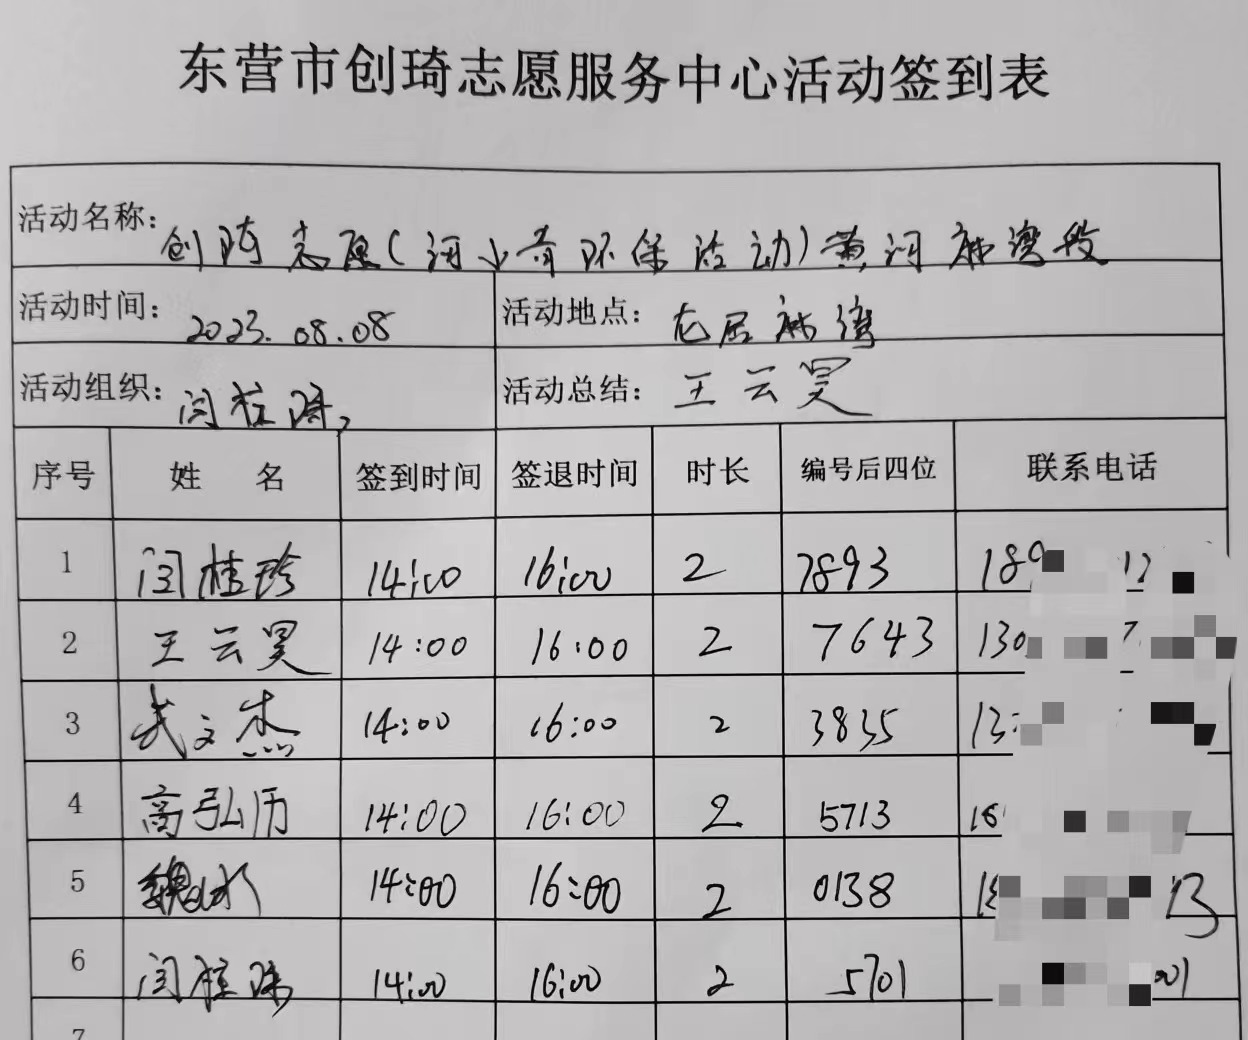 东营市创琦志愿服务中心活动签到表
活动名称: 创琦志愿(河小青环保活动)黄河麻湾段
活动时间: 2023.08.08 活动地点: 龙居麻湾
活动组织: 闫桂 活动总结: 王云昊
序号 姓 名 签到时间 签退时间 时长 编号后四位 联系电话
1 闫桂珍 14:00 16:00 2 7893 189 12
2 王云昊 14:00 16:00 2 7643 130 7
3 武文杰 14:00 16:00 2 3835 13
4 高弘历 14:00 16:00 2 5713 18
5 魏 14:00 16:00 2 0138 13
6 闫桂 14:00 16:00 2 5701 001
7